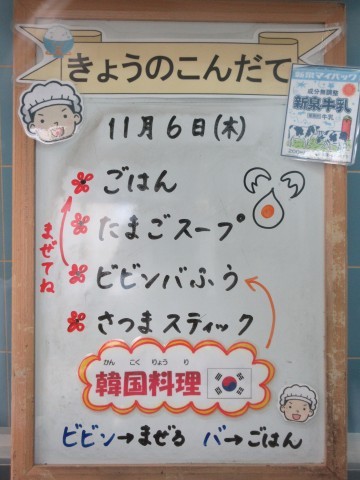 きょうのこんだて
11月6日(木)
ごはん
たまごスープ
ビビンバふう
さつまスティック
まぜてね
かんこくりょうり
韓国料理
ビビン→まぜる バ→ごはん
成分無調整
新泉牛乳